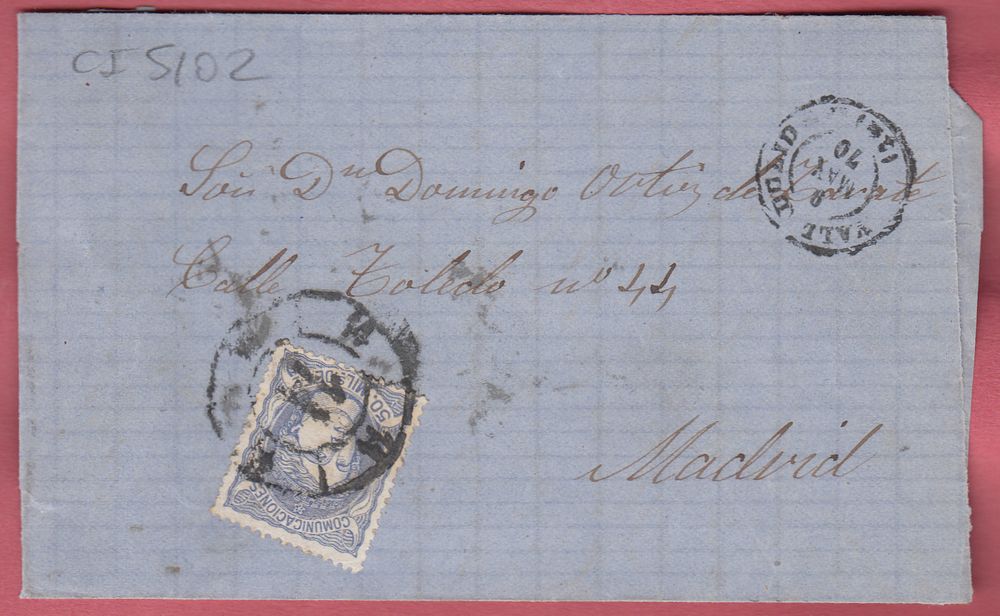 CJ 5102
VALLADOLID (42)
MAY
70
Sor Dn Domingo Ortiz de Zarate
Calle Toledo nº 44
50 MILS DE E
COMUNICACIONES
Madrid